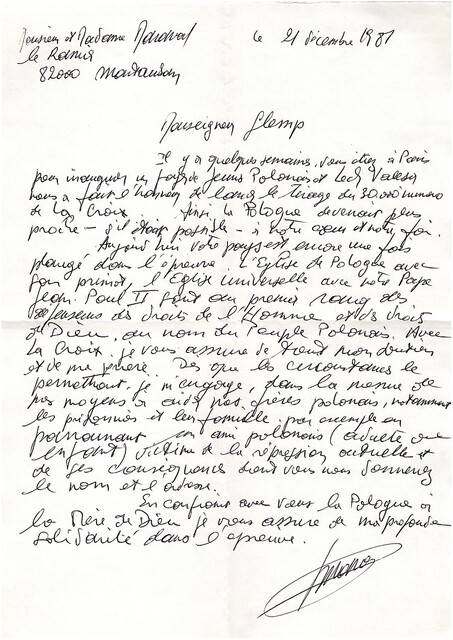 Monsieur et Madame
le Ramié
82000 Montauban
le 21 décembre 1981
Monseigneur Glemp
Il y a quelques semaines, vous étiez à Paris
pour inaugurer un foyer de jeunes Polonais et Lech Valesa
nous a fait l'honneur de lancer le tirage du 30.000 numéro
de La Croix. Ainsi la Pologne devenait plus
proche – s'il était possible – à notre cœur et notre foi.
Aujourd'hui votre pays est encore une fois
plongé dans l'épreuve. L'Eglise de Pologne avec
son primat, l'Eglise universelle avec notre Pape
Jean Paul II sont au premier rang des
défenseurs des droits de l'Homme et des droits
de Dieu, au nom du Peuple Polonais. Avec
La Croix, je vous assure de tout mon soutien
et de ma prière. Dès que les circonstances le
permettront, je m'engage, dans la mesure de
mes moyens à aider nos frères polonais, notamment
les prisonniers et leur famille par exemple en
parrainant un ami polonais (adulte ou
enfant) victime de la répression actuelle et
de ses conséquences dont vous nous donnerez
le nom et l'adresse.
En confiant avec vous la Pologne à
la Mère de Dieu je vous assure de ma profonde
solidarité dans l'épreuve.